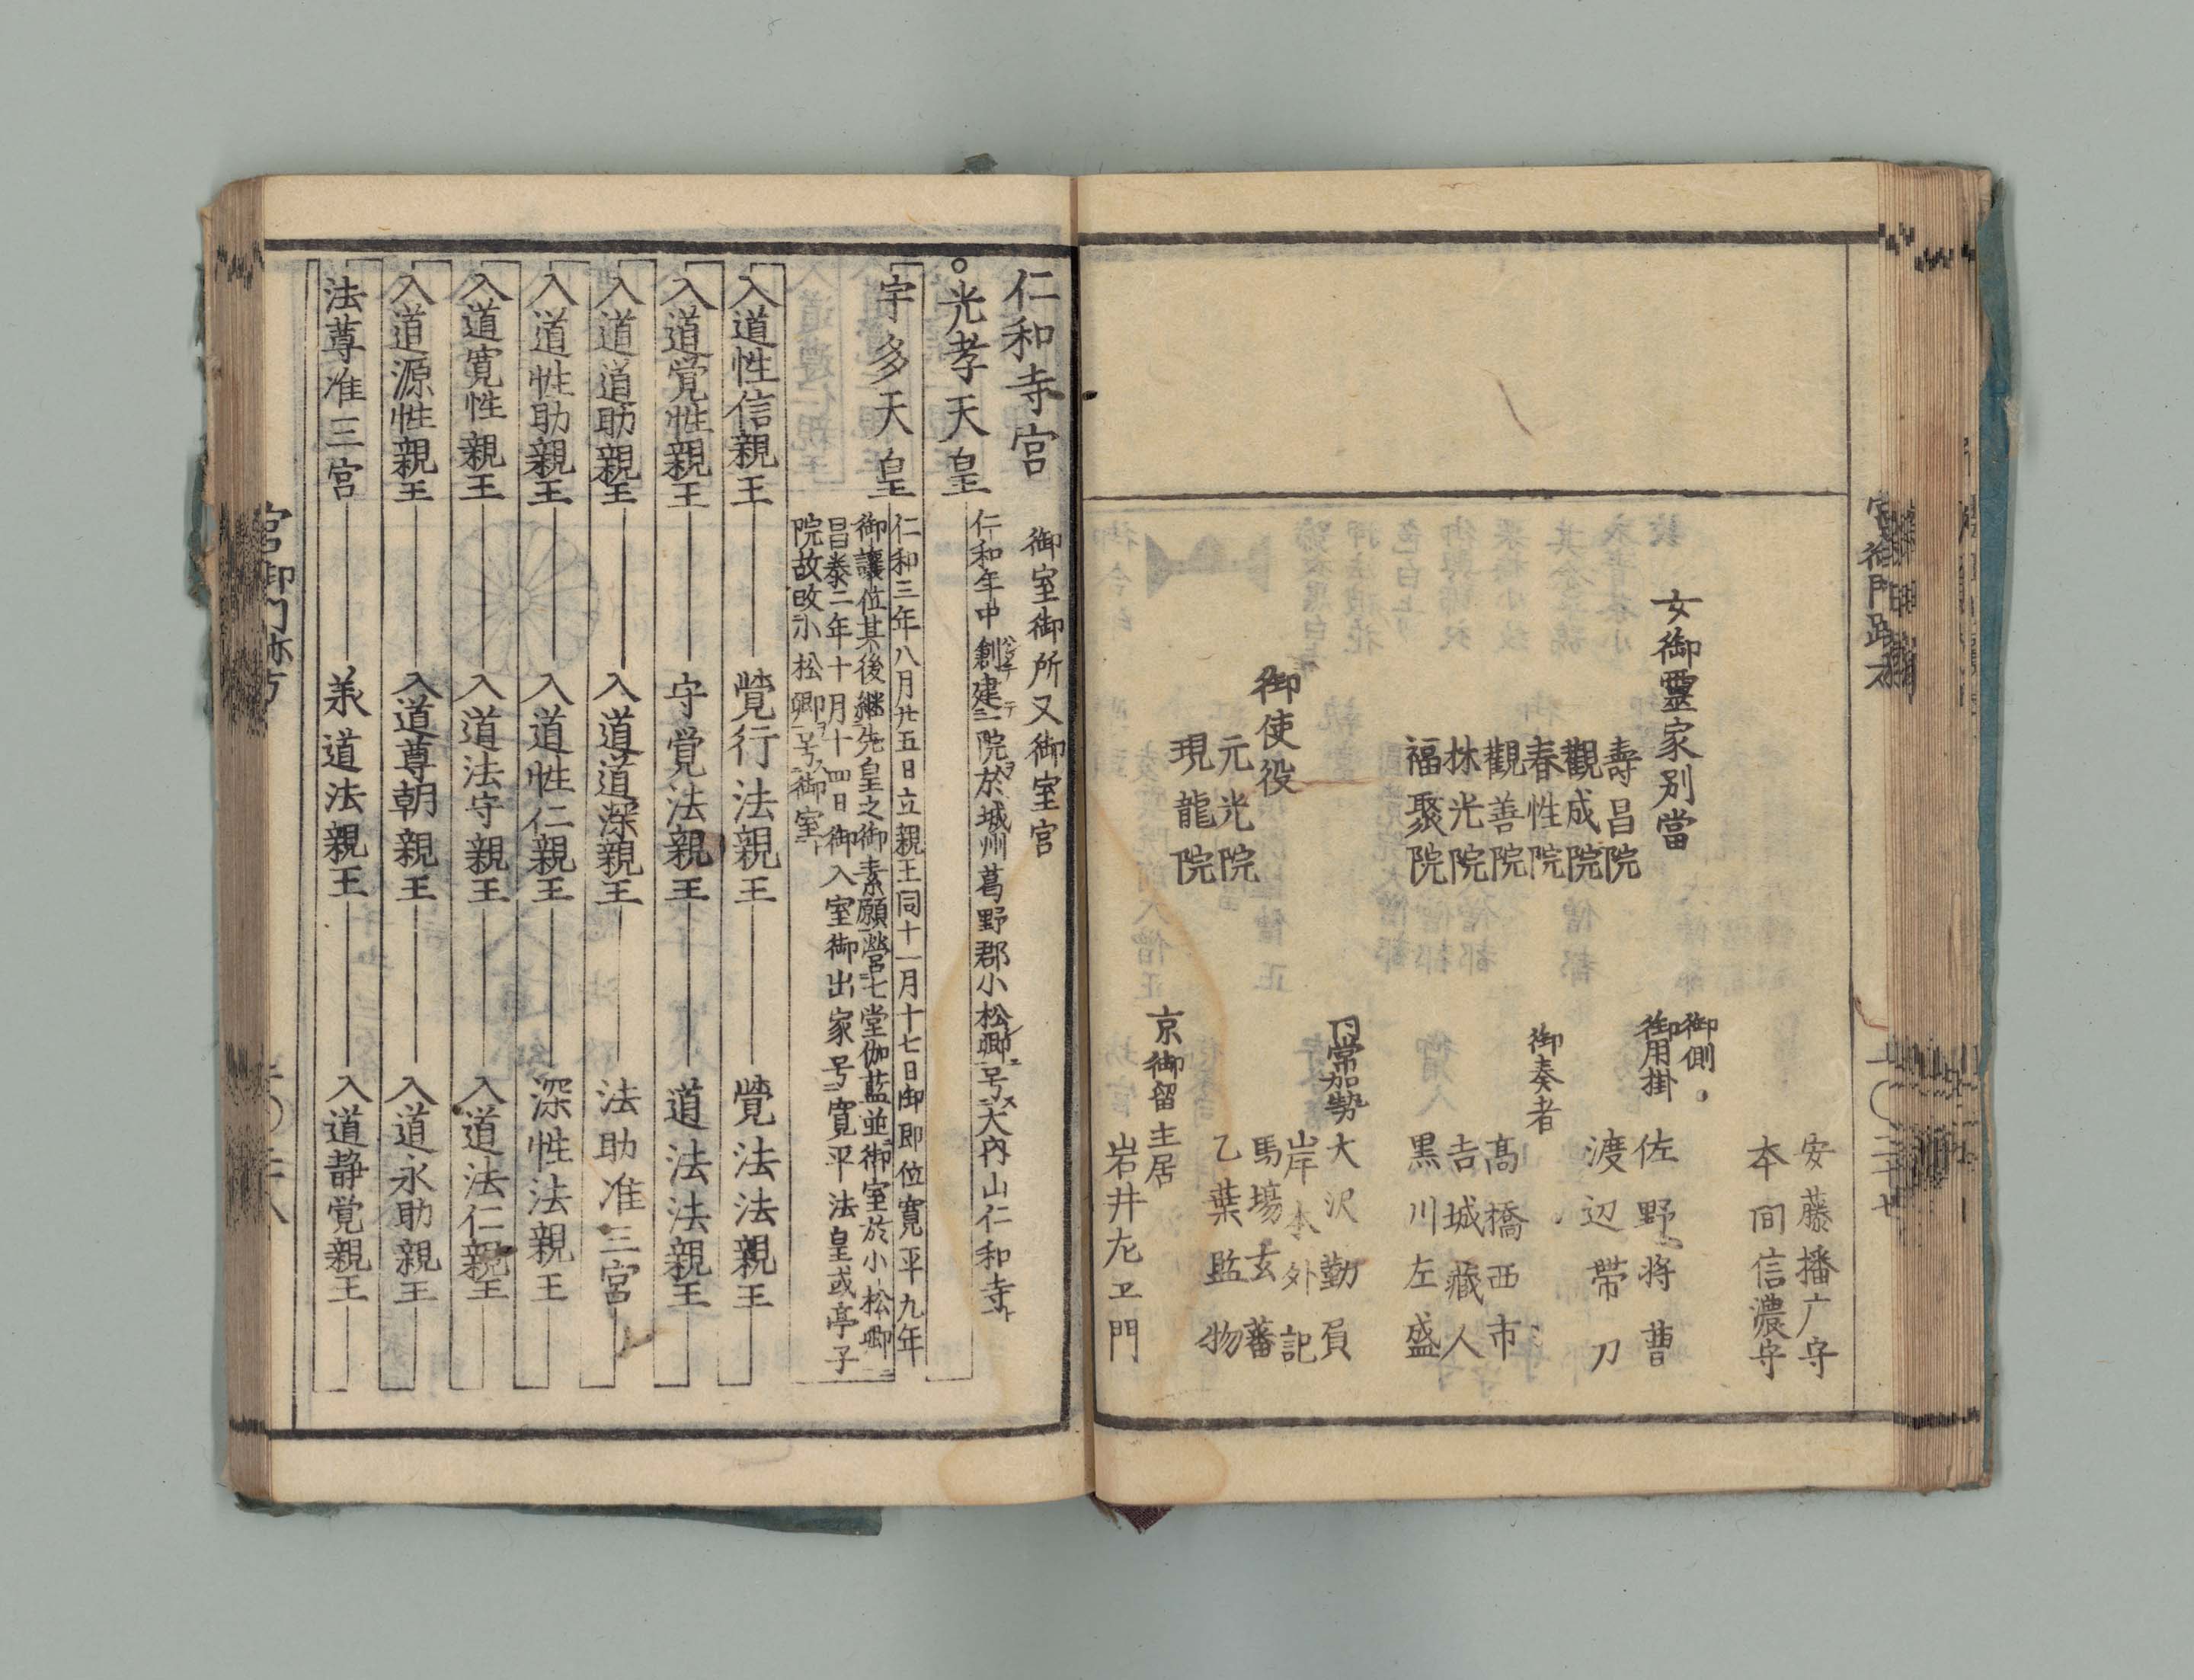 安藤播广守
本間信濃守
御側
御用掛
佐野将曹
渡辺帯刀
御奏者
髙橋西市
吉城藏人
黒川左盛
日常加勢
大沢勤負
岸本外記
馬場玄蕃
乙葉監物
京御留主居
岩井左ヱ門
女御靈家別當
壽昌院
觀成院
春性院
觀善院
林光院
福聚院
御使役
元光院
現龍院
仁和寺宮
御室御所又御室宮
光孝天皇
仁和年中創建一院於城州葛野郡小松郷号大内山仁和寺
宇多天皇
仁和三年八月廿五日立親王同十一月十七日御即位寛平九年
御讓位其後継先皇之御素願營七堂伽藍並御室於小松郷
昌泰二年十月十四日御入室御出家号寛平法皇或亭子
院故改小松郷号御室
入道性信親王
覺行法親王
覺法法親王
入道覚性親王
守覚法親王
道法法親王
入道道助親王
入道道深親王
法助准三宮
入道性助親王
入道性仁親王
深性法親王
入道寛性親王
入道法守親王
入道法仁親王
入道源性親王
入道尊朝親王
入道永助親王
法尊准三宮
義道法親王
入道静覚親王